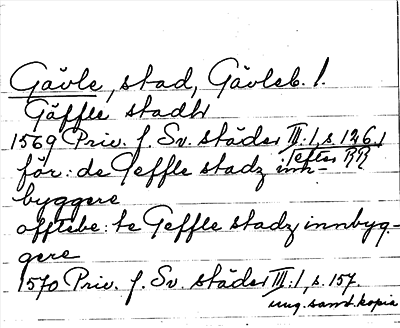 Gävle, stad, Gävleb. l.
Gäffle stadh
1569 Priv. f. Sv. städer III:1, s. 126.1
(efter RR
för: de Geffle stadz inn-
byggere
offtebe: te Geffle stadz innbyg-
gere
1570 Priv. f. Sv. städer III:1, s. 157.
ung. samt. kopia